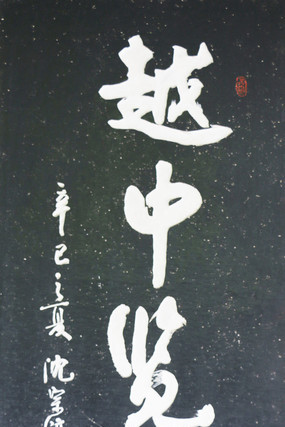 越中览
辛巳之夏沈